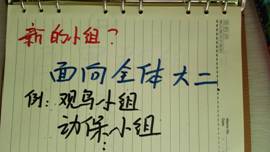 新的小组？
面向全体大二
例：观鸟小组
动保小组
⋮